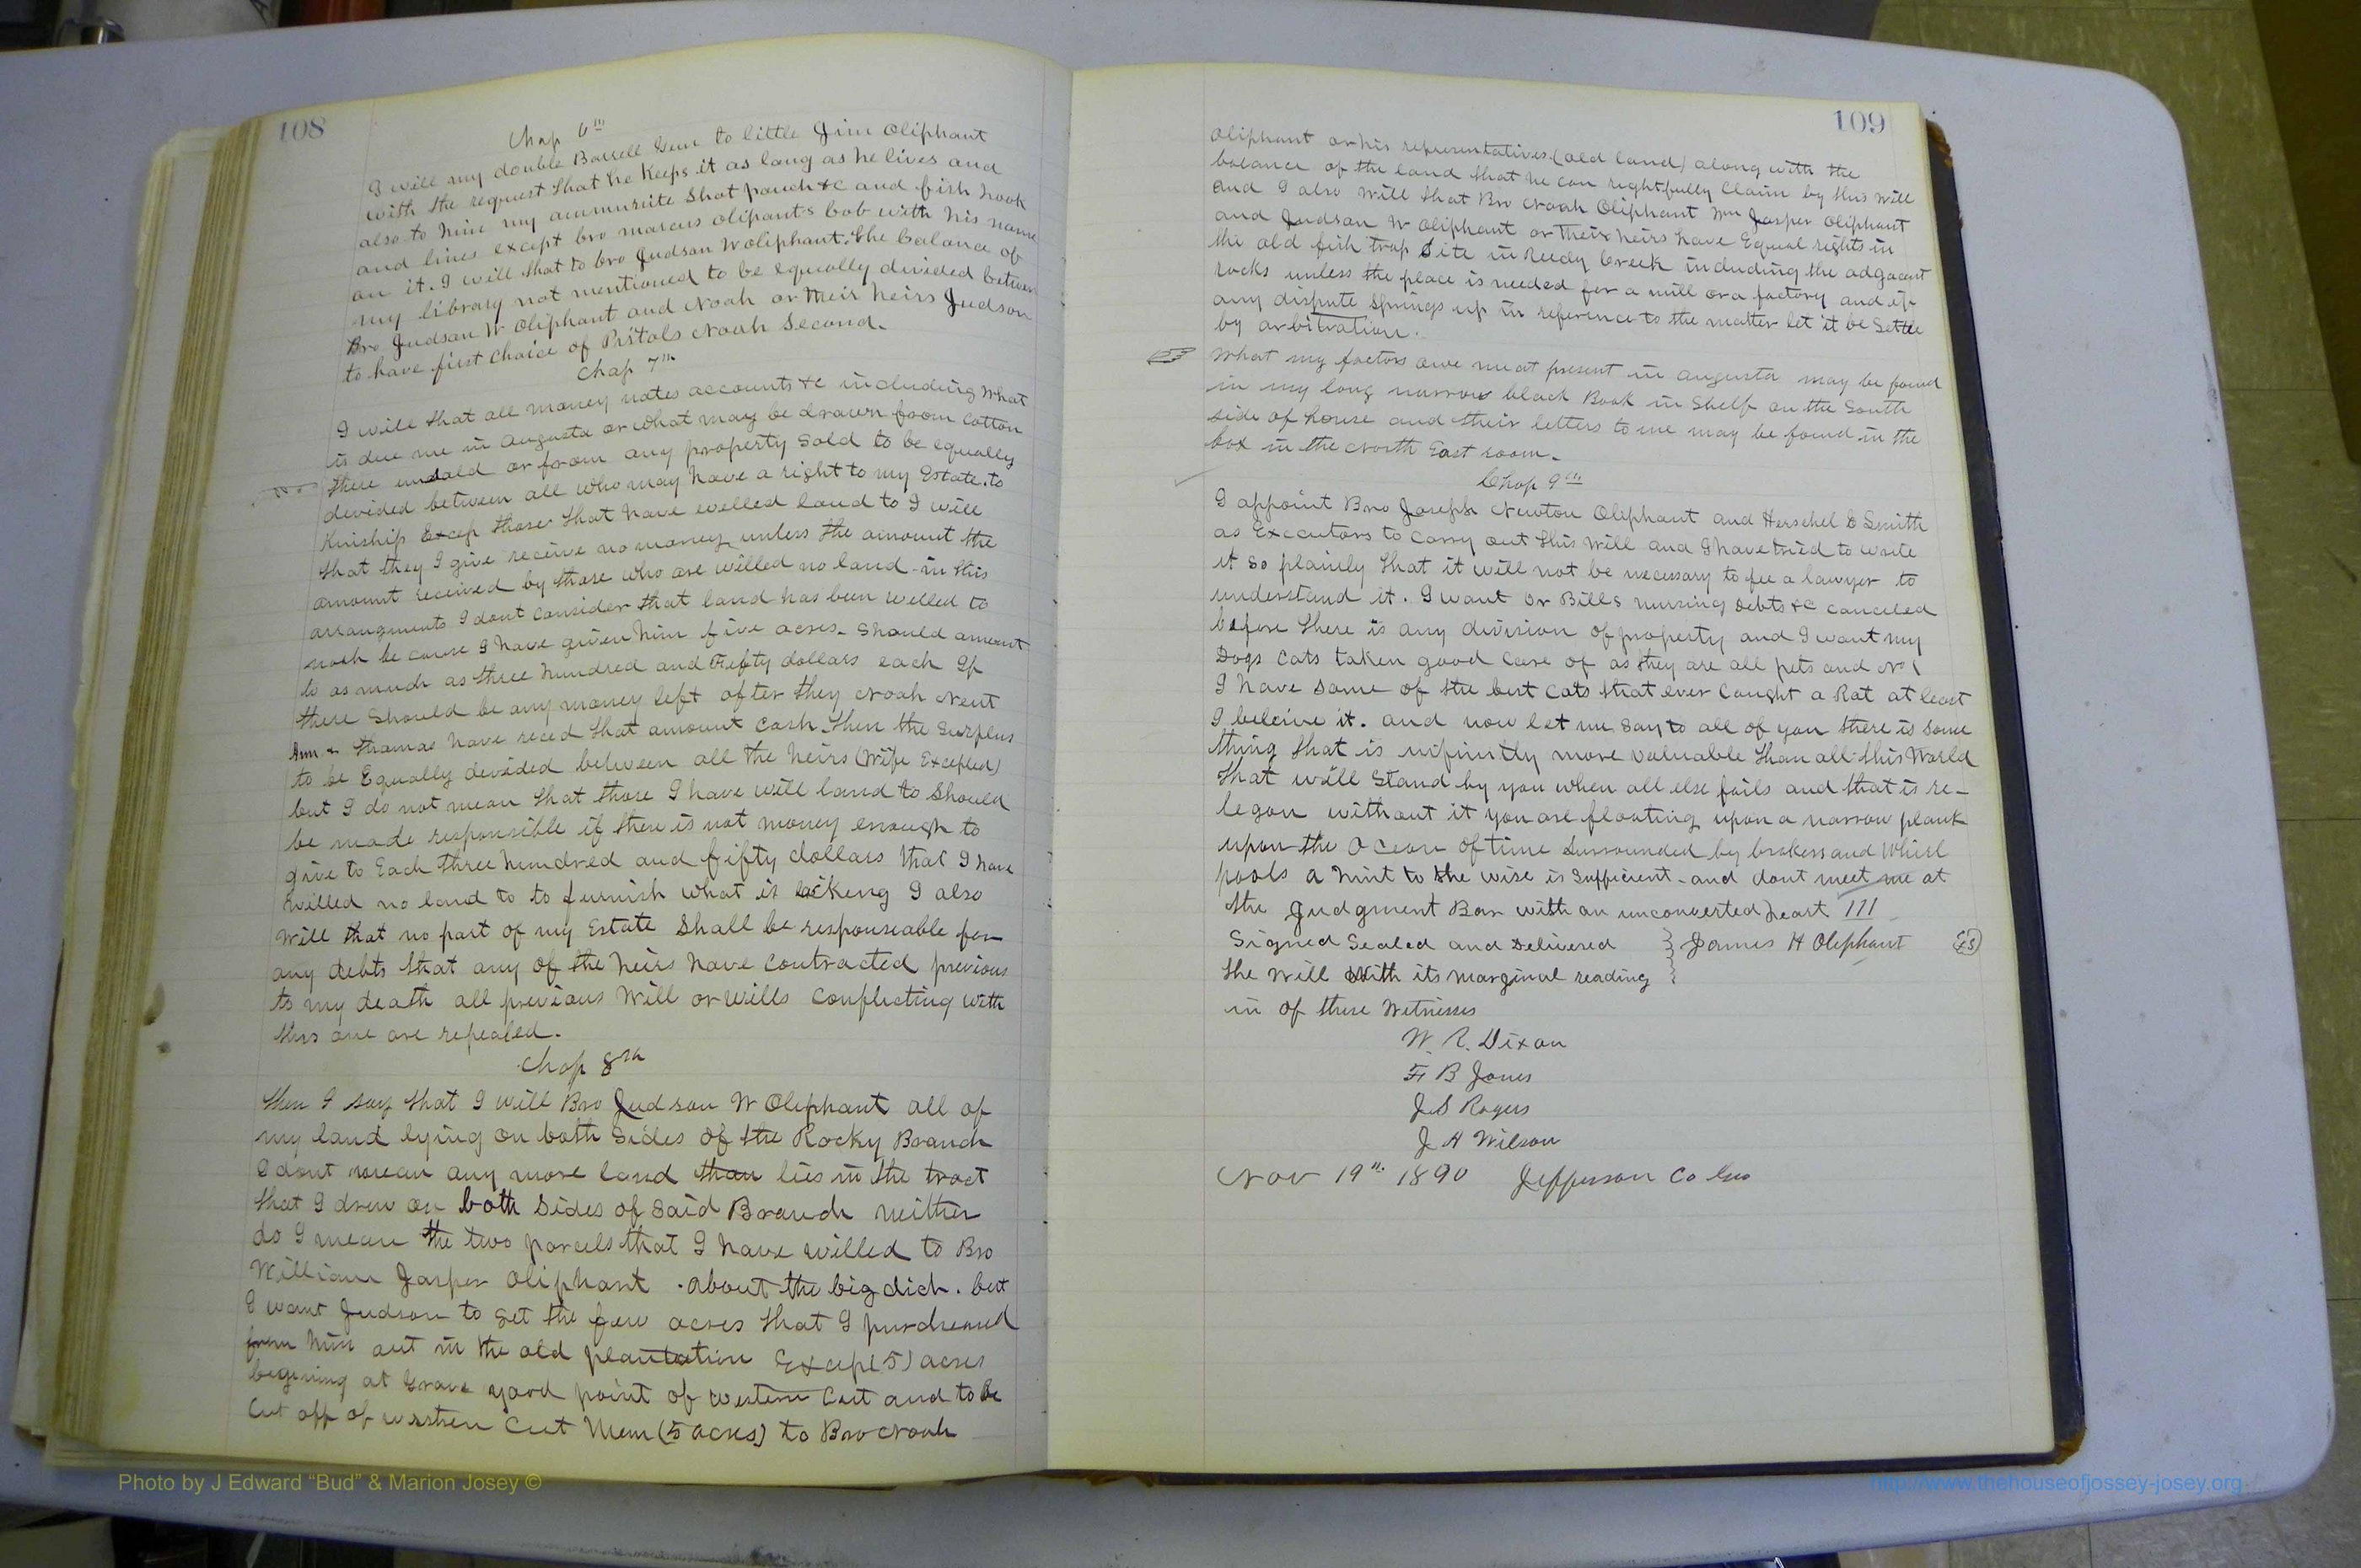 108
Chap 6th
I will my double Barrell Gun to little Jim Oliphant
with the request that he keeps it as long as he lives and
also to him my ammunite shot pouch &c and fish hook
and lines except bro marcus olipants bob with his name
on it. I will that to bro Judson W oliphant. the balance of
my library not mentioned to be equally divided between
Bro Judson W Oliphant and Noah or their heirs Judson
to have first choice of Pistols Noah Second.
Chap 7th
I will that all money notes accounts &c including what
is due me in Augusta or what may be drawn from cotton
there unsold or from any property sold to be equally
devided between all who may have a right to my Estate. to
Kinship Excep those that have willed land to I will
that they I give receive no money unless the amount the
amount received by those who are willed no land in this
arrangments I dont consider that land has been willed to
noah be cause I have given him five acres. Should amount
to as much as three hundred and Fifty dollars each If
there should be any money left after they Noah Newt
Ann & Thomas have reced that amount cash. then the Surplus
to be Equally devided between all the heirs (Wife Excepted)
but I do not mean that those I have will land to should
be made responsible if there is not money enough to
give to Each three hundred and fifty dollars that I have
willed no land to to furnish what is lacking I also
will that no part of my Estate shall be responseable for
any debts that any of the heirs have contracted previous
to my death all previous will or wills conflicting with
this one are repealed.
Chap 8th
then I say that I will Bro Judson W Oliphant all of
my land lying on both sides of the Rocky Branch
I dont mean any more land than lies in the tract
that I drew on both sides of said Branch neither
do I mean the two parcels that I have willed to Bro
William Jasper Oliphant . about the big dich . but
I want Judson to get the few acres that I purchased
from him out in the old plantation Except 5) acres
begining at Grave yard point of western cut and to be
cut off of western cut Mem (5 acres) to Bro Noah
109
Oliphant or his representatives (old land) along with the
balance of the land that he can rightfully claim by this will
and I also will that Bro Noah Oliphant Wm Jasper Oliphant
and Judson W Oliphant or their heirs have Equal rights in
the old fish trap site in Reedy Creek including the adgacent
rocks unless the place is needed for a mill or a factory and if
any dispute springs up in reference to the matter let it be settle
by arbitration.
What my factors owe me at present in augusta may be found
in my long narrow black Book in shelf on the South
side of house and their letters to me may be found in the
box in the North East room.
Chap 9th
I appoint Bro Joseph Newton Oliphant and Herschel D Smith
as Executors to carry out this will and I have tried to write
it so plainly that it will not be necessary to fee a lawyer to
understand it. I want Dr Bills nursing debts &c canceled
before there is any division of property and I want my
Dogs cats taken good care of as they are all pets and
I have some of the best cats that ever caught a Rat at least
I beleive it. and now let me say to all of you there is some
thing that is infinitly more valuable than all this World
that will stand by you when all else fails and that is re-
legon without it you are floating upon a narrow plank
upon the Ocean of time surrounded by brakers and whirl
pools a hint to the wise is sufficient - and dont meet me at
the Judgment Bar with an unconverted heart !!!
Signed Sealed and Delivered } James H Oliphant (LS)
the will with its marginal reading
in of these Witnesses
W. R. Dixon
F B Jones
J S Rogers
J H Wilson
Nov 19th 1890 Jefferson Co Geo
Photo by J Edward “Bud” & Marion Josey ©
http://www.thehouseofjossey-josey.org